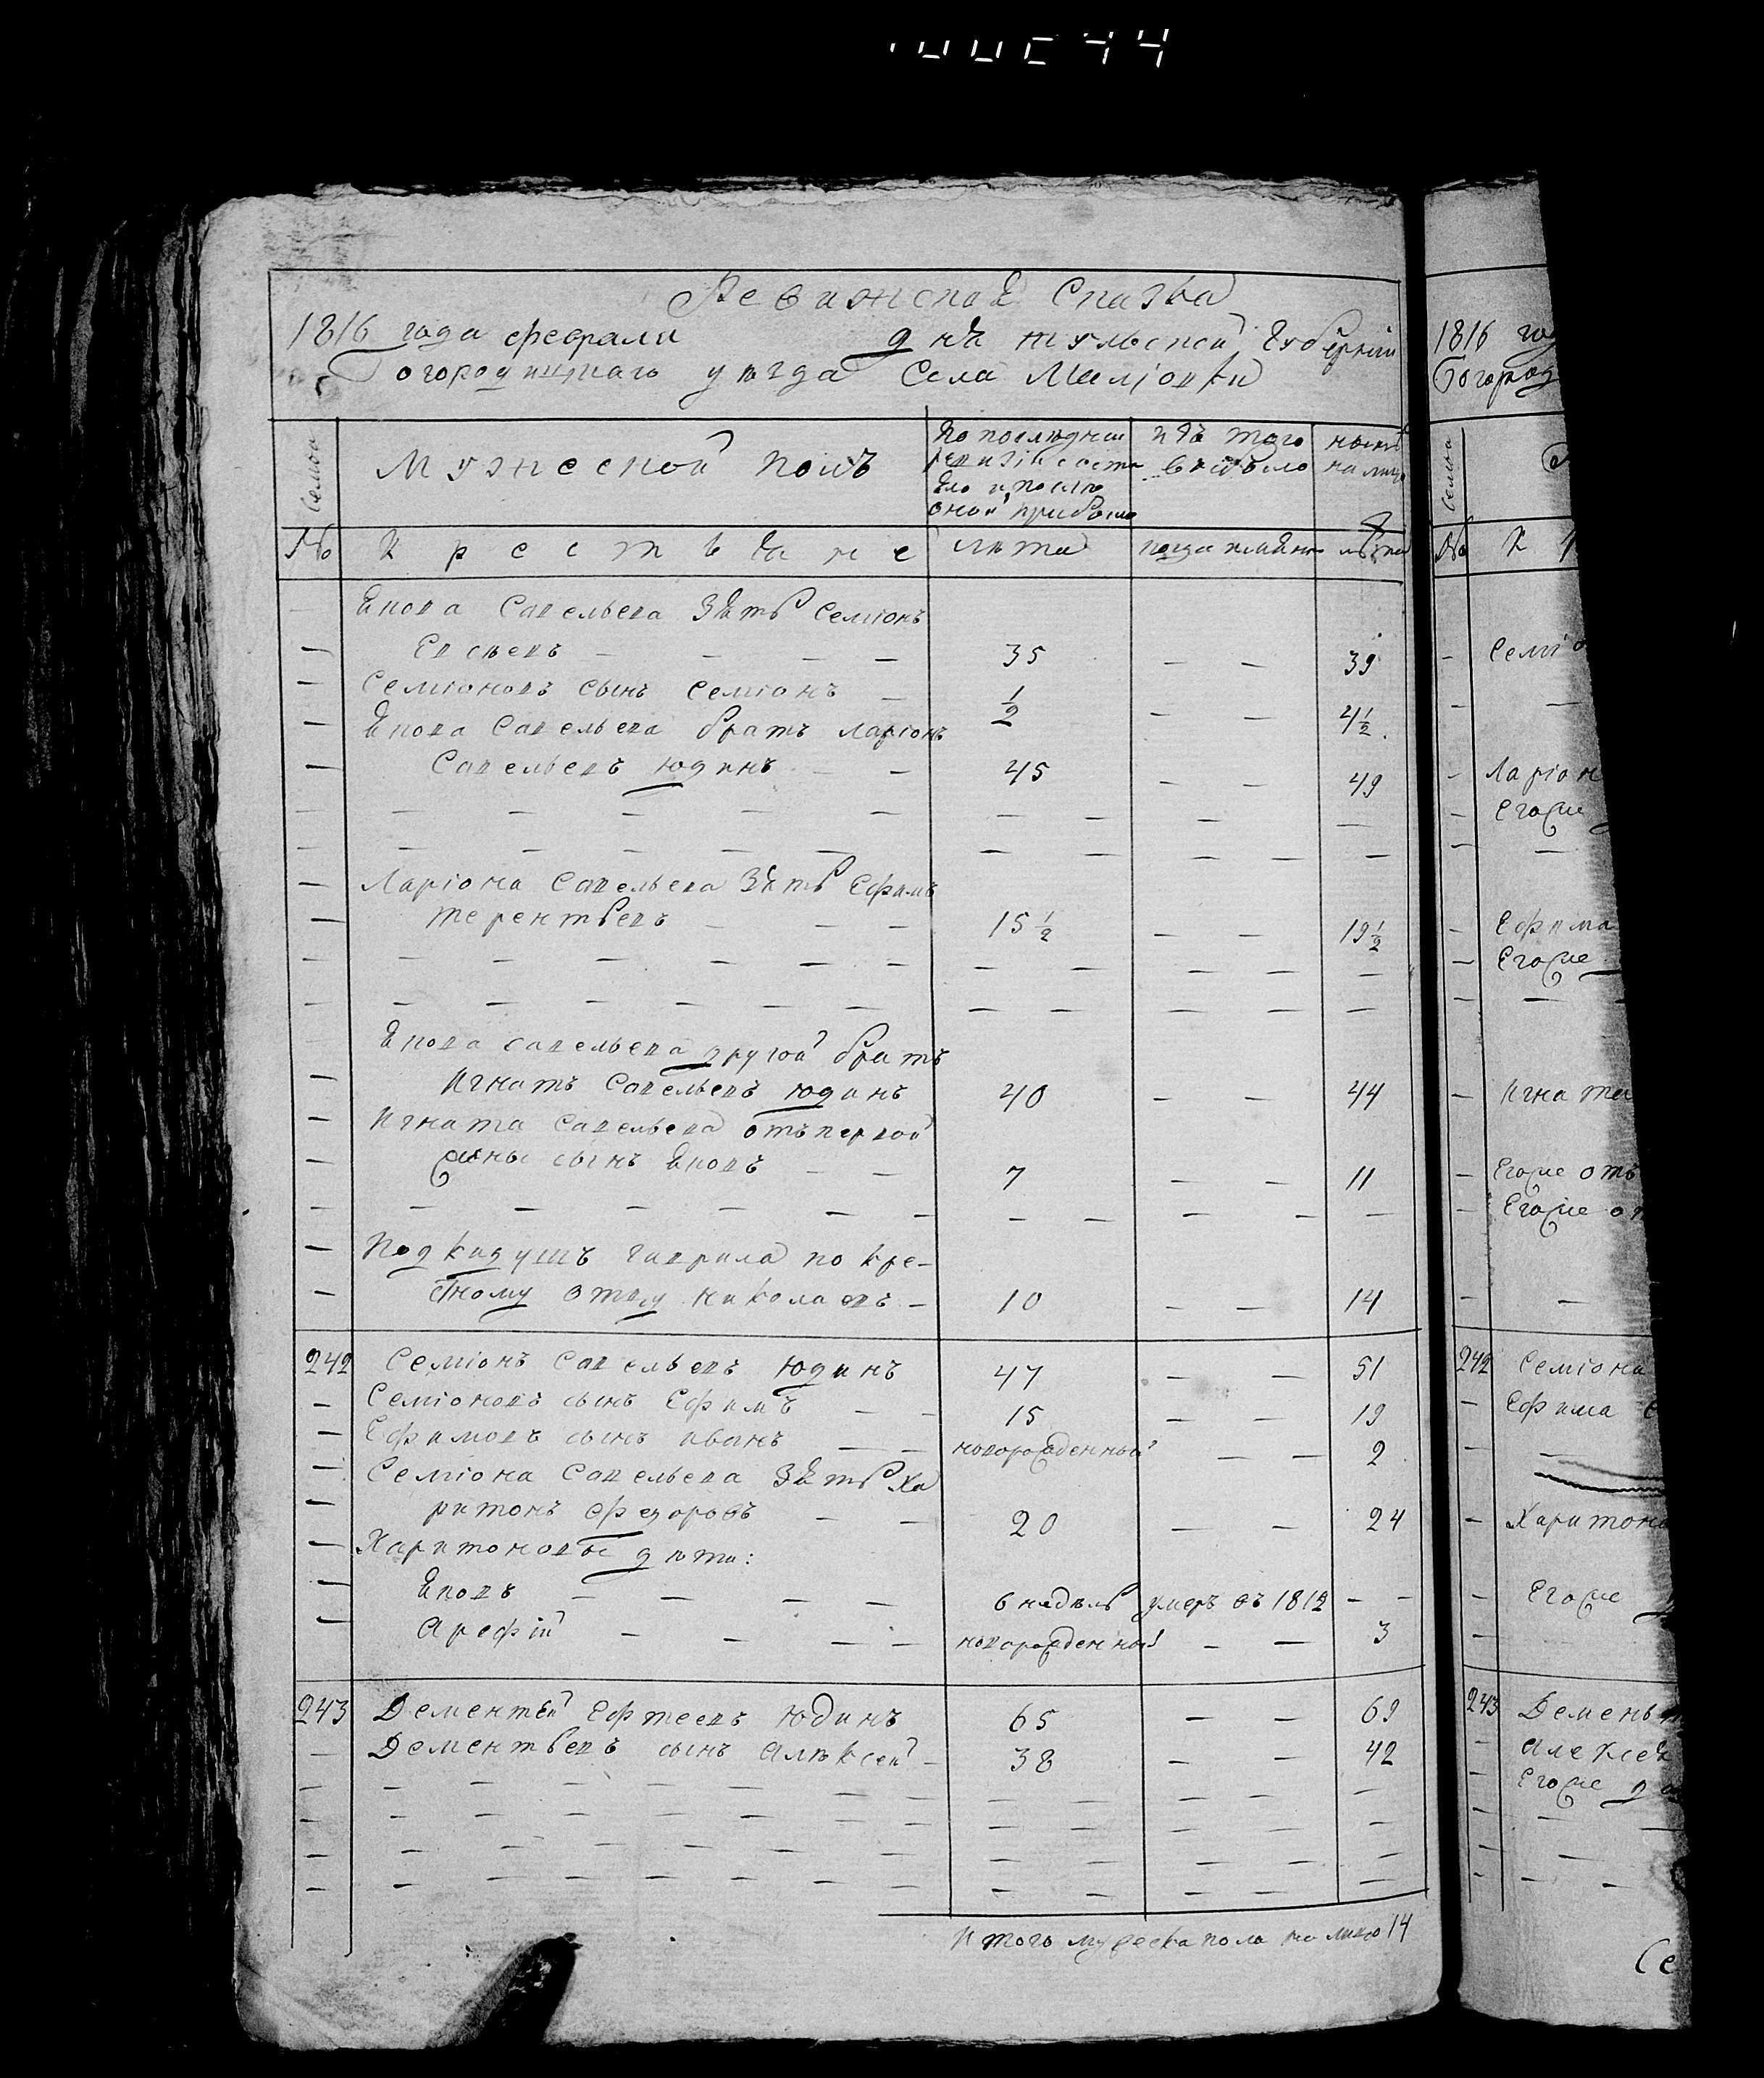 Ревижская Сказка
1816 года февраля дня тульской Губернiи
Богородицкаго уѣзда Села
Семьи
Мужеской полъ
По последней ревизiи состояло и после оной прибыло
изъ того выбыло
ныне на лицо
№
Крестьяне
лѣта
когда имянно
лѣта
Якова Савельева Зять Семiонъ
Евсѣевъ — — — — 35 — — 39
Семiоновъ сынъ Семiонъ — 1/2 — — 4 1/2
Якова Савельева братъ Ларiонъ
Савельевъ Юдинъ — — 45 — — 49
Ларiона Савельева Зять Ефимъ
терентьевъ — — — 15 1/2 — — 19 1/2
Якова савельева другой братъ
Игнатъ Савельевъ Юдинъ 40 — — 44
Игната Савельева отъ первой
жены сынъ Яковъ — — 7 — — 11
Подкидушъ Гаврила по кре-
стному отцу Николаевъ — 10 — — 14
242 Семiонъ Савельевъ Юдинъ 47 — — 51
Семiоновъ сынъ Ефимъ — — 15 — — 19
Ефимовъ сынъ иванъ — — новорожденный — — 2
Семiона Савельева Зять Ха
ритонъ Федоровъ — — 20 — — 24
Харитоновы дѣти:
Яковъ — — — — 6 недѣль умеръ въ 1812 — —
Арефiй — — — — новорожденный — — 3
243 Дементей Ефтеевъ Юдинъ 65 — — 69
Дементьевъ сынъ Алѣксей — 38 — — 42
Итого мужеска пола на лицо 14
1816 год
Богород
Семьи
№ К р
Семiо
Ларiон
Егоже
Ефима
Егоже
Игната
Егоже отъ
Егоже от
242 Семiона
Ефима
Харитона
Егоже
243 Дементь
Алексея
Егоже
Се